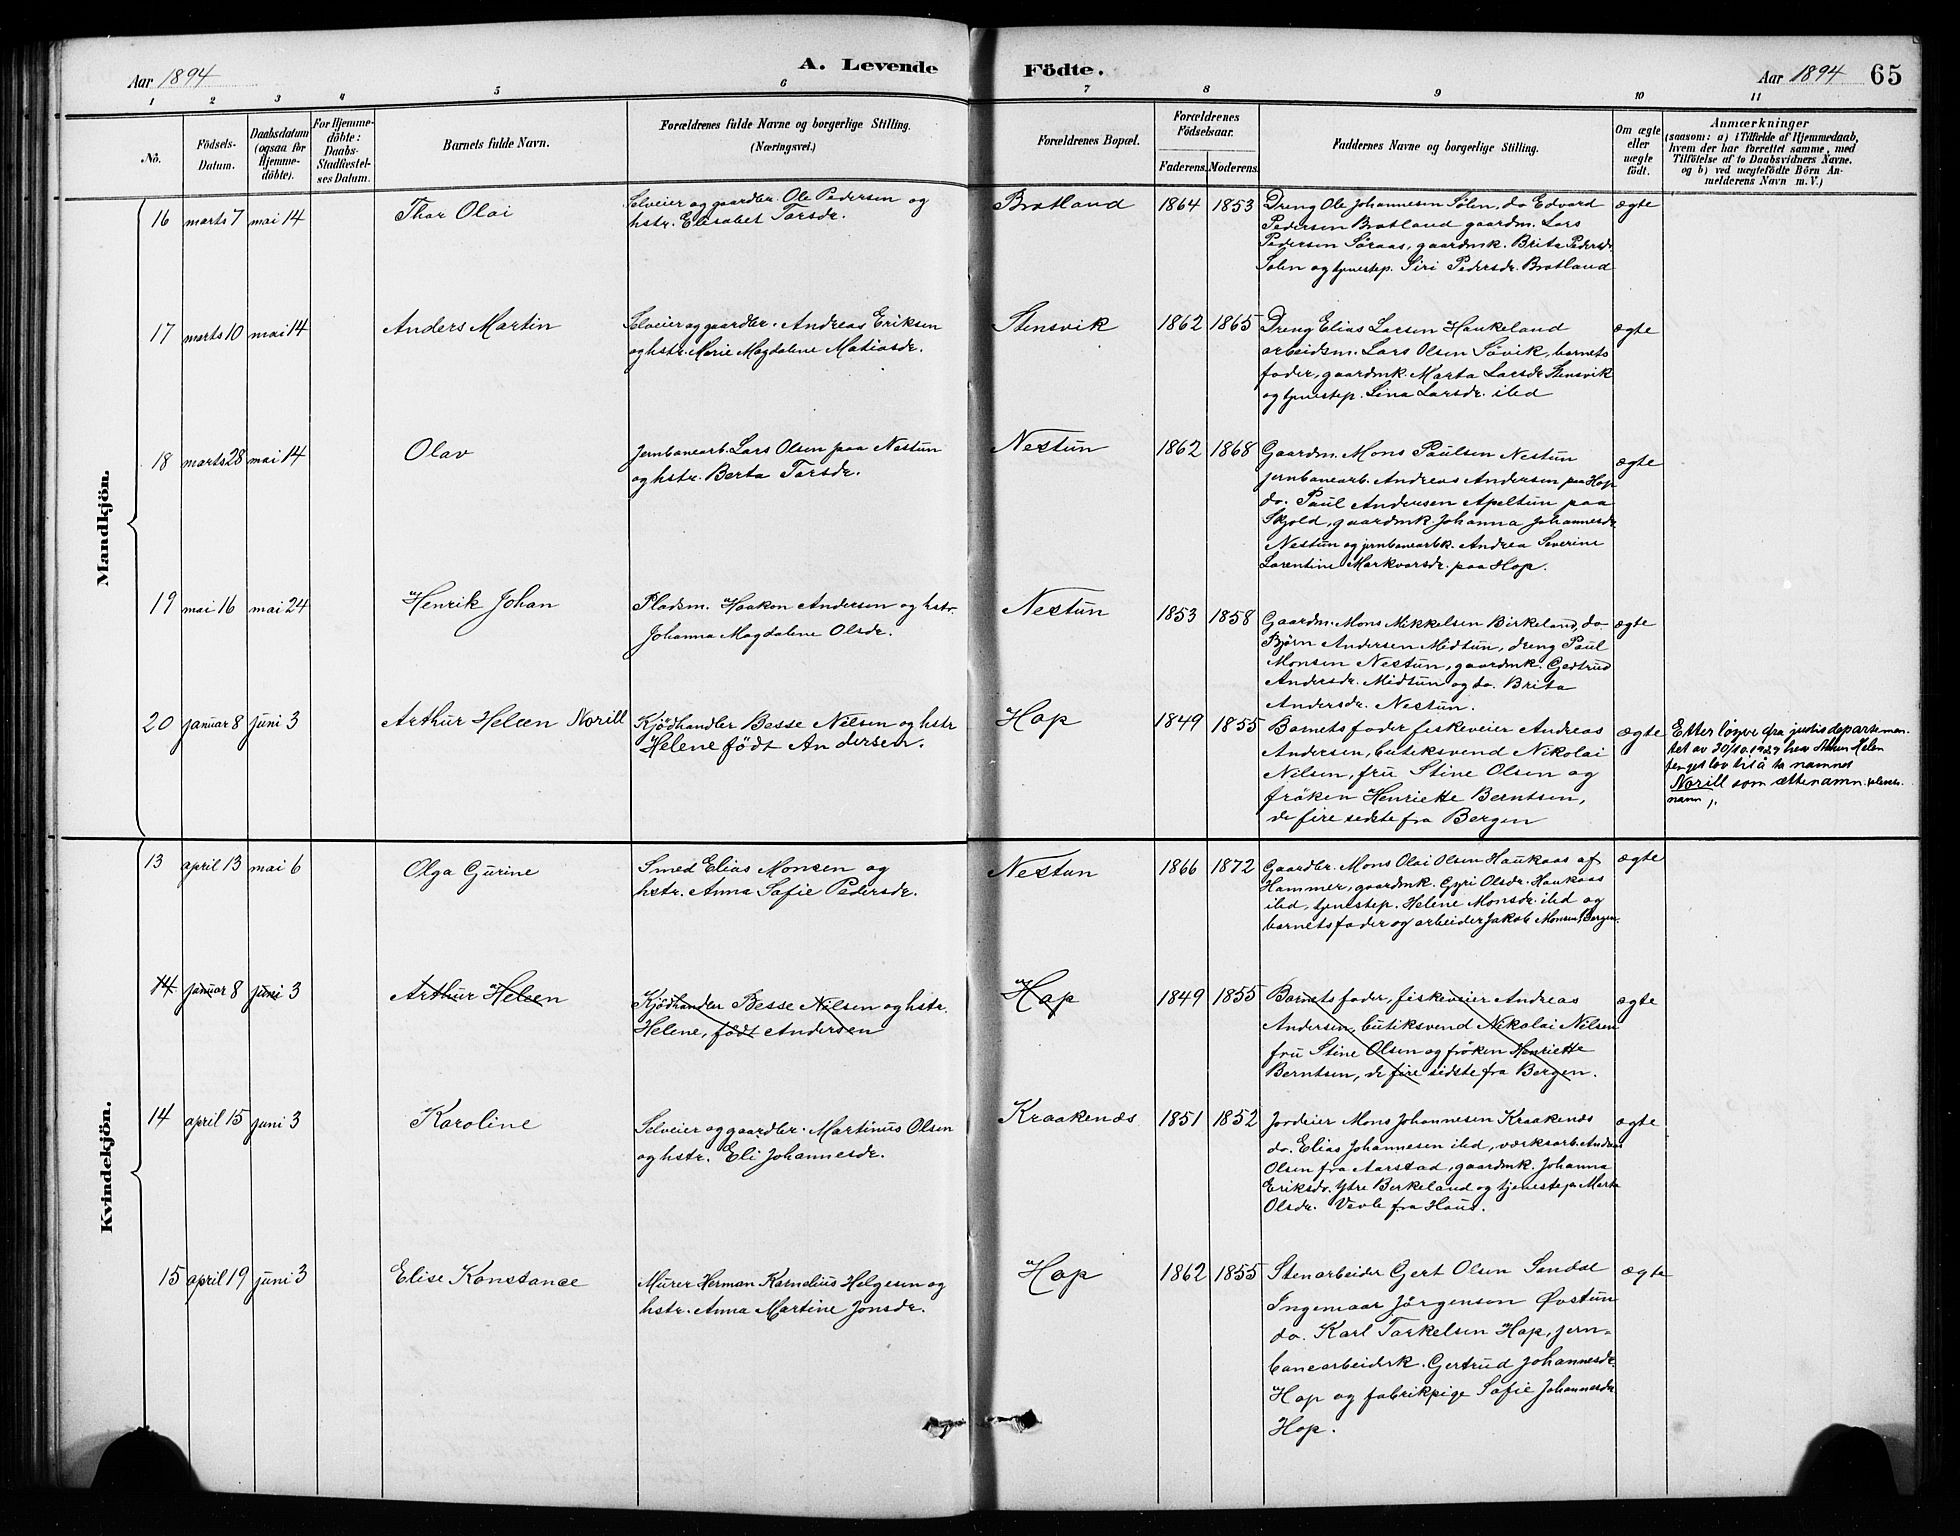 Aar 1894
A. Levende Födte.
Aar 1894 65
1 2 3 4 5 6 7 8 9 10 11
Nô.
Födsels-
Datum.
Daabsdatum
(ogsaa for
Hjemme-
döbte).
For Hjemme-
döbte:
Daabs-
Stadfæstel-
ses Datum.
Barnets fulde Navn.
Forældrenes fulde Navne og borgerlige Stilling.
(Næringsvei.)
Forældrenes Bopæl.
Forældrenes
Födselsaar.
Faderens. Moderens.
Faddernes Navne og borgerlige Stilling.
Om ægte
eller
uægte
födt.
Anmærkninger
(saasom: a) i Tilfælde af Hjemmedaab,
hvem der har forrettet samme, med
Tilföielse af to Daabsvidners Navne.
og b) ved uægtefödte Börn An-
melderens Navn m. V.)
Mandkjön.
16 marts 7 mai 14
Thor Olai
Selveier og gaardbr. Ole Pedersen og
hstr. Elisabet Torsdr.
Bratland
1864 1853
Dreng Ole Johannesen Sølen, do Edvard
Pedersen Bratland gaardm. Lars
Pedersen Söraas, gaardmk. Brita Pedersdr.
Solen og tjenestep. Siri Pedersdr. Bratland
ægte
17 marts 10 mai 14
Anders Martin
Selveier og gaardbr. Andreas Eriksen
og hstr. Marie Magdalene Matiasdr.
Stensvik
1862 1865
Dreng Elias Larsen Haukeland
arbeidsm. Lars Olsen Sövik, barnets
fader, gaardmk. Marta Larsdr Stensvik
og tjenestep. Lina Larsdr. ibd
ægte
18 marts 28 mai 14
Olav
Jernbanearb. Lars Olsen paa Nestun
og hstr. Berta Torsdr.
Nestun
1862 1868
Gaardm. Mons Paulsen Nestun
jernbanearb. Andreas Andersen paa Hop
do. Paul Andersen Apeltun paa
Skjold, gaardmk Johanna Johannesdr.
Nestun og jernbanearbk. Andrea Severine
Larentine Markvarsdr. paa Hop.
ægte
19 mai 16 mai 24
Henrik Johan
Pladsm. Haakon Andersen og hstr.
Johanna Magdalene Olsdr.
Nestun
1853 1858
Gaardm. Mons Mikkelsen Birkeland, do
Björn Andersen Midtun, dreng Paul
Monsen Nestun, gaardmk. Gjertrud
Andersdr. Midtun og do. Brita
Andersdr. Nestun.
ægte
20 januar 8 juni 3
Arthur Helen Norill
Kjödhandler Besse Nilsen og hstr
Helene født Andersen.
Hop
1849 1855
Barnets fader fiskeveier Andreas
Andersen, butiksvend Nikolai
Nilsen, fru Stine Olsen og
fröken Henriette Berntsen,
de fire sidste fra Bergen
ægte
Etter løyve fra justisdepartemen-
tet av 30/10.1929 hev
fenget lov til å ta namnet
Norill som ættenamn
namn
Kvindekjön.
13 april 13 mai 6
Olga Gurine
Smed Elias Monsen og
hstr. Anna Sofie Pedersdr.
Nestun
1866 1872
Gaardbr. Mons Olai Olsen Haukaas af
Hammer, gaardmk. Gyri Olsdr. Haukaas
ibd, tjenestep. Helene Monsdr. ibd og
barnets fader og arbeider Jakob Monsen, Bergen.
ægte
14 januar 8 juni 3
Arthur Helen
Kjödhandler Besse Nilsen og hstr.
Helene, født Andersen
Hop
1849 1855
Barnets fader, fiskeveier Andreas
Andersen, butiksvend Nikolai Nilsen
fru Stine Olsen og fröken Henriette
Berntsen, de fire sidste fra Bergen.
ægte
14 april 15 juni 3
Karoline
Selveier og gaardbr. Martinus Olsen
og hstr. Eli Johannesdr.
Kraakenæs
1851 1852
Jordeier Mons Johannesen Kraakenæs
do. Elias Johannesen ibd, værksarb. Andreas
Olsen fra Aarstad, gaardmk. Johanna
Eriksdr. Ytre Birkeland og tjenestep. Marta
Olsdr. Vevle fra Haus.
ægte
15 april 19 juni 3
Elise Konstance
Murer Herman Kornelius Helgesen og
hstr. Anna Martine Jonsdr.
Hop
1862 1855
Stenarbeider Gert Olsen Sandal
Ingemaar Jörgenson Øvstun
do. Karl Torkelsen Hop, jern-
banearbeiderk. Gertrud Johannesdr.
Hop og fabrikpige Sofie Johannesdr
Hop.
ægte